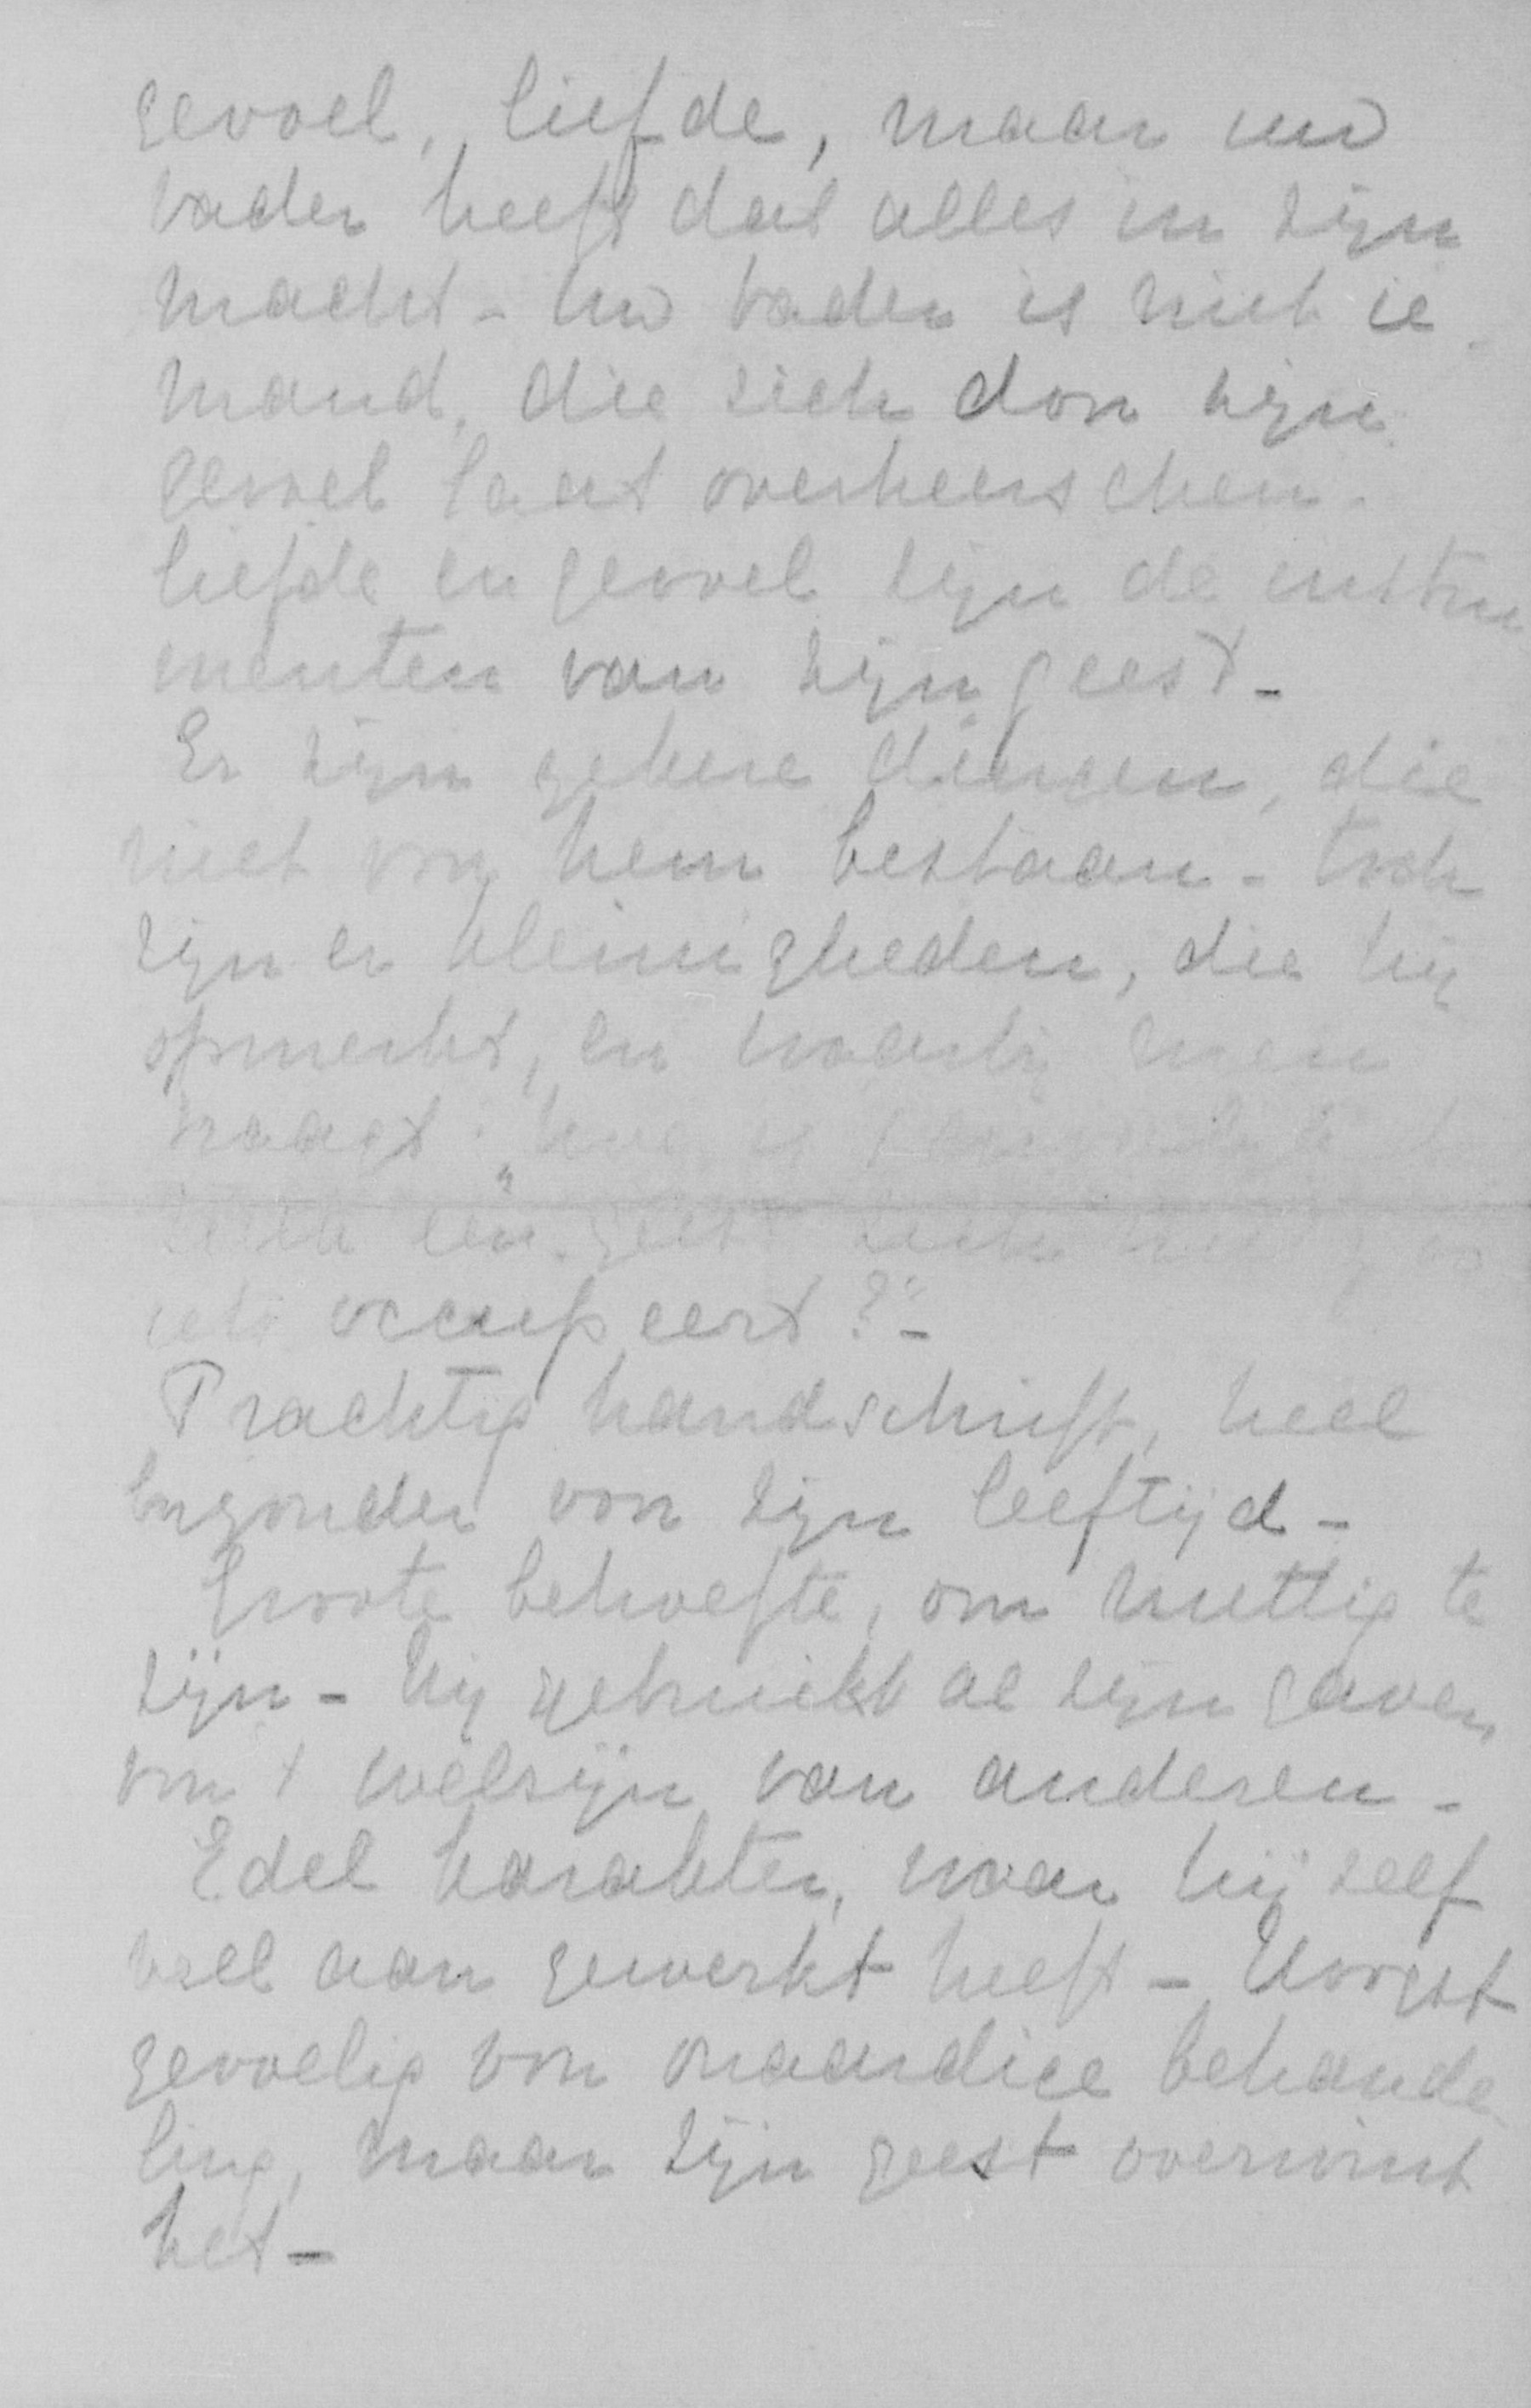 gevoel, liefde, maar uw
vader heeft dat alles in zijn
macht - Uw vader is niet ie
mand, die zich door zijn
gevoel laat overheerschen.
liefde en gevoel zijn de instru
menten van zijn geest -
Er zijn zekere dingen, die
niet voor hem bestaan - toch
zijn er kleinigheden, die hij
opmerkt, en waarbij men
vraagt: „hoe is
een geest zich
iets occupeert?" -
Prachtig handschrift, heel
bijzonder voor zijn leeftijd -
Groote behoefte, om nuttig te
zijn - Hij gebruikt al zijn gaven
voor t welzijn van anderen -
Edel karakter, waar hij zelf
veel aan gewerkt heeft - Hoogst
gevoelig voor onaardige behande
ling, maar zijn geest overwint
het -